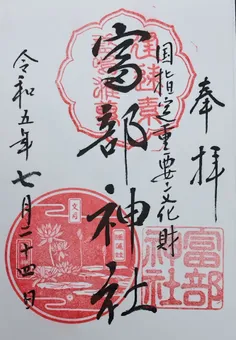 奉拝
国指定重要文化財
富部神社
令和五年七月二十四日
富部
神社
文月